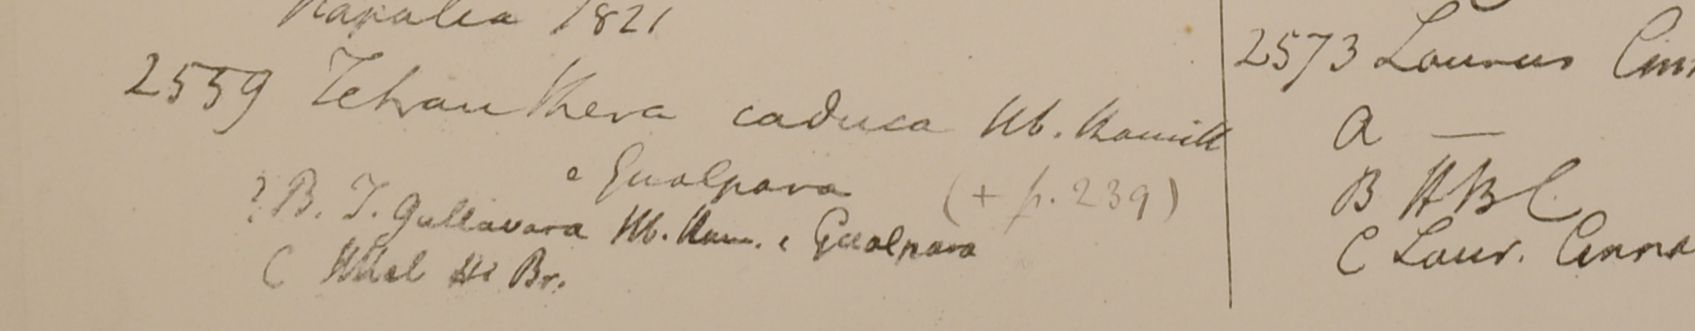 Napalia 1821
2559 Tetranthera caduca Hb. Hamilt
e Gualpara (+ p. 239)
? B. T. gullavara Hb. Ham. e Gualpara
C Br.
2573 Laurus Cinn
a —
B HBC
C Laur. Cinna